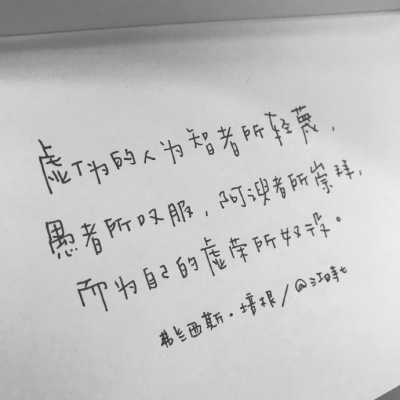 虚伪的人为智者所轻蔑，
愚者所叹服，阿谀者所崇拜，
而为自己的虚荣所奴役。
弗兰西斯·培根/@